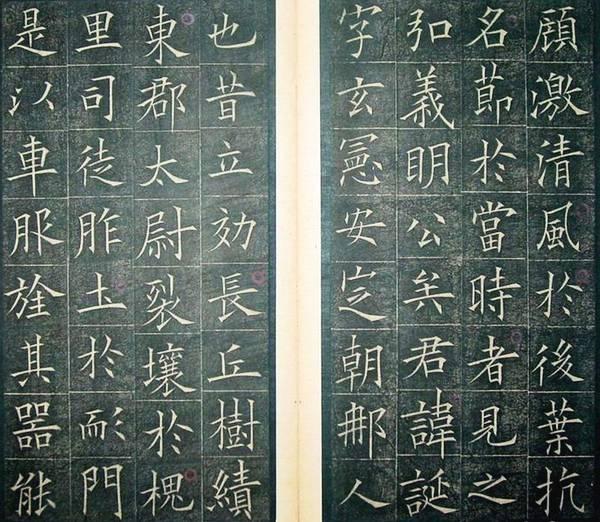 顧激清風於後葉抗
名莭於當時者見之
弘義明公矣君諱誕
字玄憲安定朝那人
也昔立効長丘樹績
東郡太尉裂壤於槐
里司徒胙土於耏門
是以車服旌其器能